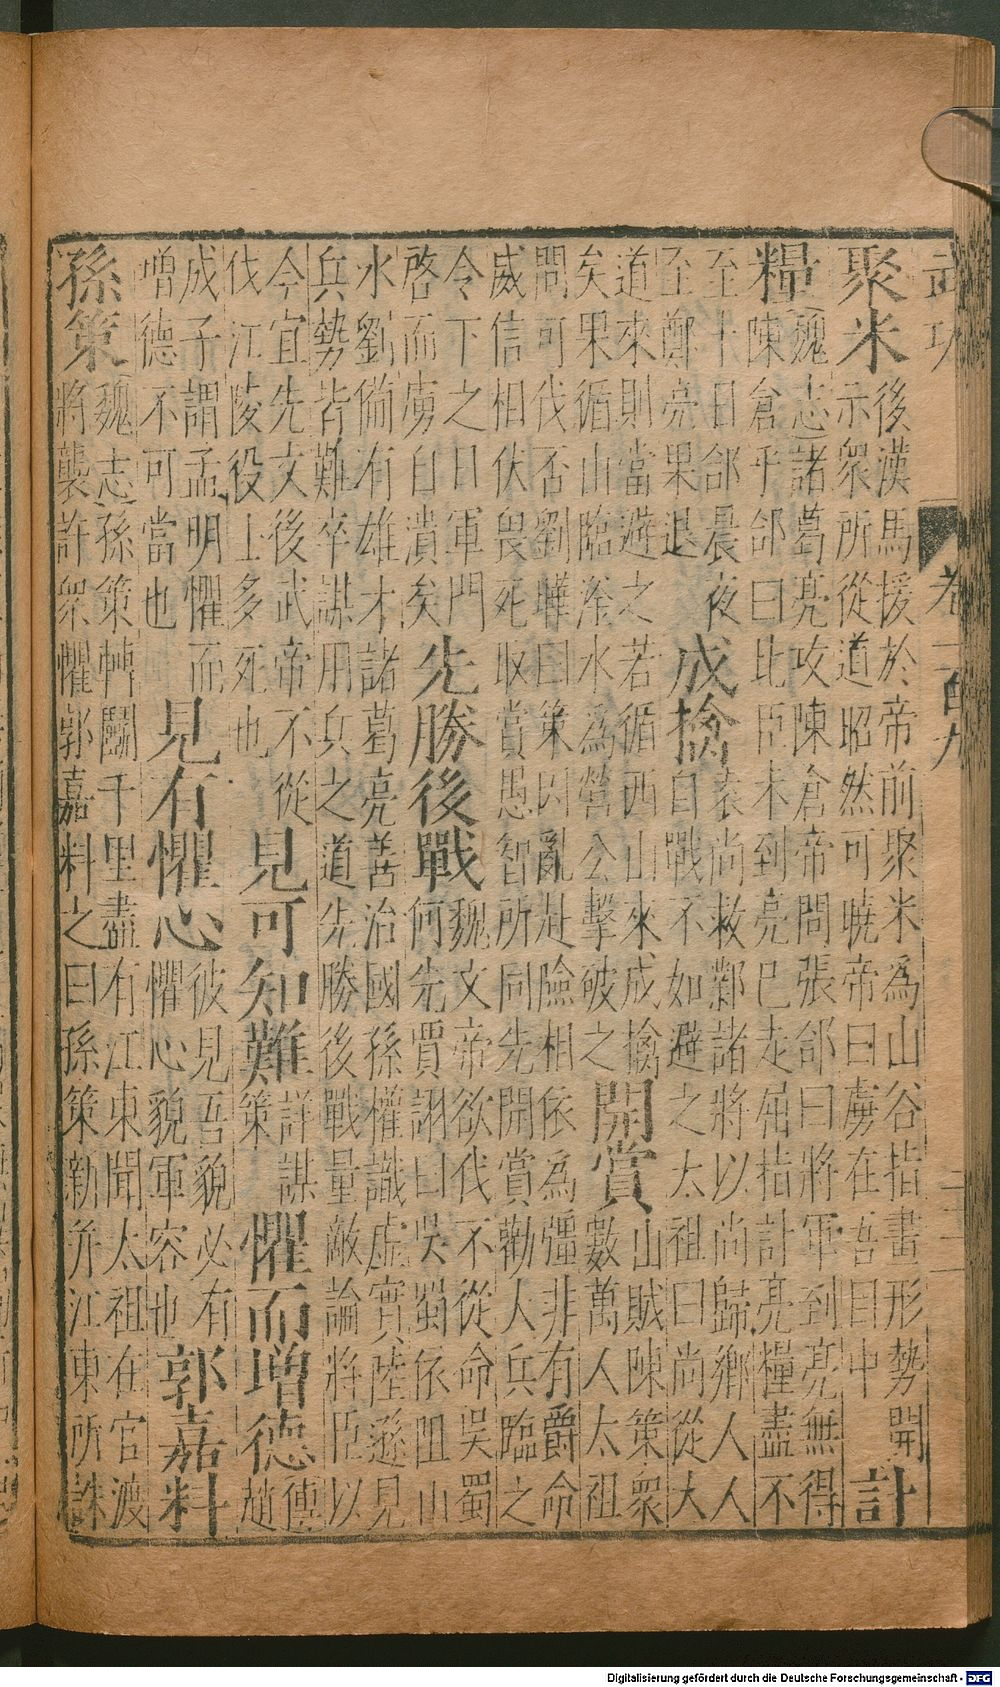 武功 卷一百九 二
聚米
後漢馬援於帝前聚米為山谷指畫形勢開
示衆所從道昭然可曉帝曰虜在吾目中
計
糧
魏志諸葛亮攻陳倉帝問張郃曰將軍到亮無得
陳倉乎郃曰比臣未到亮已走屈指計亮糧盡不
至十日郃晨夜
至鄭亮果退
成擒
袁尚救鄴諸將以尚歸鄉人人
自戰不如避之太祖曰尚從大
道來則當避之若循西山來成擒
矣果循山臨滏水為營公擊破之
開賞
山賊陳策衆
數萬人太祖
問可伐否劉曄曰策因亂赴險相依為彊非有爵命
威信相伏畏死取賞愚智所同先開賞勸人兵臨之
令下之日軍門
啓而虜自潰矣
先勝後戰
魏文帝欲伐不從命吳蜀
何先賈詡曰吳蜀依阻山
水劉備有雄才諸葛亮善治國孫權識虛實陸遜見
兵勢皆難卒謀用兵之道先勝後戰量敵論將臣以
今宜先文後武帝不從
伐江陵役士多死也
見可知難
詳謀
策
懼而增德
傳
趙
成子謂孟明懼而
增德不可當也
見有懼心
彼見吾貌必有
懼心貌軍容也
郭嘉料
孫策
魏志孫策轉鬭千里盡有江東聞太祖在官渡
將襲許衆懼郭嘉料之曰孫策新并江東所誅
Digitalisierung gefördert durch die Deutsche Forschungsgemeinschaft - DFG